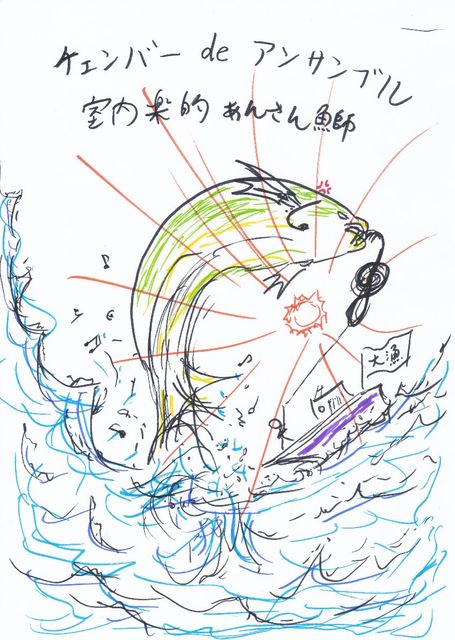 チェンバー de アンサンブル
室内楽的 あんさん鰤
大漁